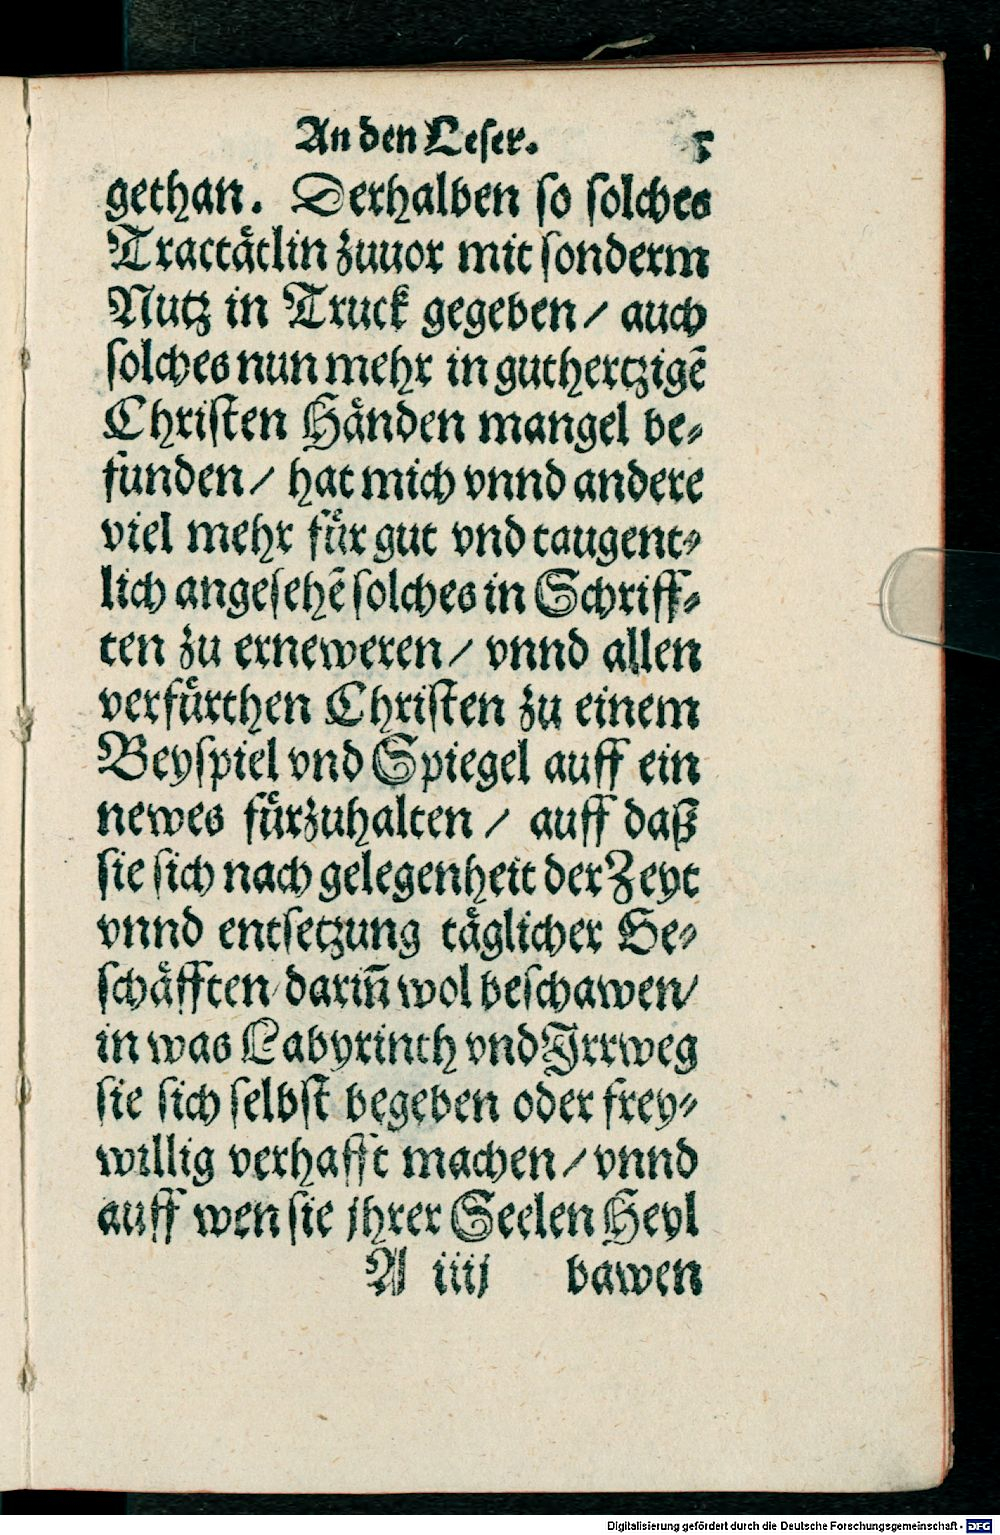 An den Leser. 5
gethan. Derhalben so solches
Tractaͤtlin zuuor mit sonderm
Nutz in Truck gegeben / auch
solches nun mehr in guthertzigẽ
Christen Haͤnden mangel be⸗
funden / hat mich vnnd andere
viel mehr fuͤr gut vnd taugent⸗
lich angesehẽ solches in Schriff⸗
ten zu erneweren / vnnd allen
verfuͤrthen Christen zu einem
Beyspiel vnd Spiegel auff ein
newes fuͤrzuhalten / auff daß
sie sich nach gelegenheit der Zeyt
vnnd entsetzung taͤglicher Ge⸗
schaͤfften darin̄ wol beschawen /
in was Labyrinth vnd Irrweg
sie sich selbst begeben oder frey⸗
willig verhafft machen / vnnd
auff wen sie jhrer Seelen Heyl
A iiij bawen
Digitalisierung gefördert durch die Deutsche Forschungsgemeinschaft - DFG